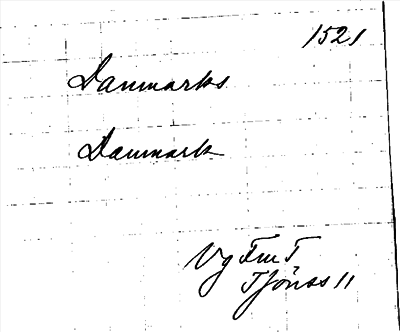 1521
Danmarks
Danmark
Vg FmT
Tjönss 11